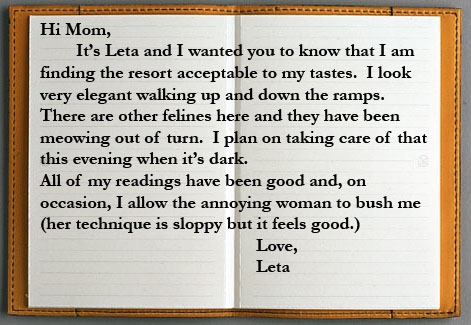 Hi Mom,
It's Leta and I wanted you to know that I am
finding the resort acceptable to my tastes.  I look
very elegant walking up and down the ramps.
There are other felines here and they have been
meowing out of turn.  I plan on taking care of that
this evening when it's dark.
All of my readings have been good and, on
occasion, I allow the annoying woman to bush me
(her technique is sloppy but it feels good.)
Love,
Leta